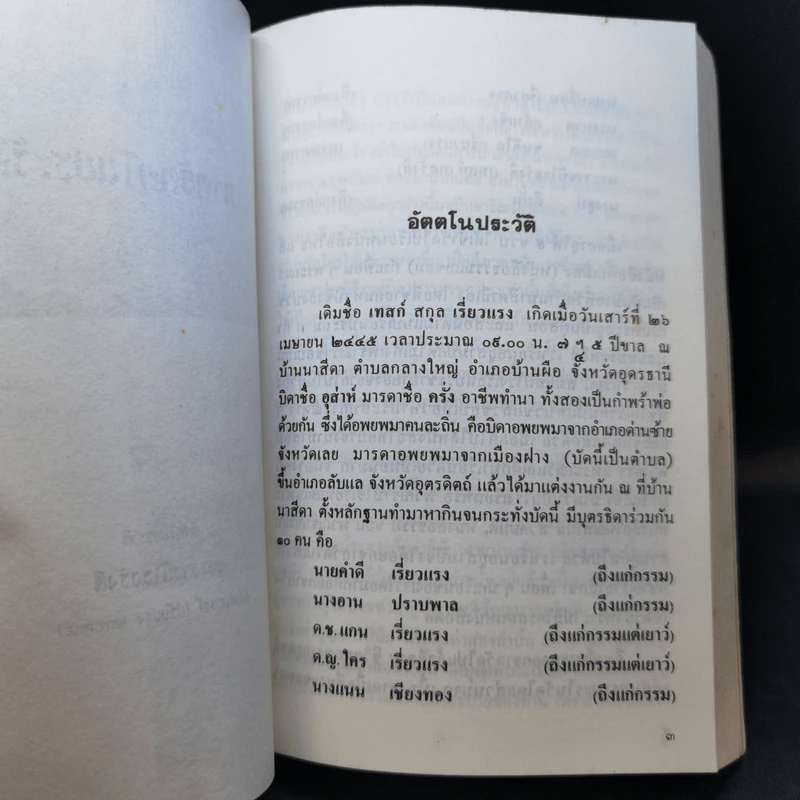 อัตตโนประวัติ
เดิมชื่อ เทสก์ สกุล เรี่ยวแรง เกิดเมื่อวันเสาร์ที่ ๒๖
เมษายน ๒๔๔๕ เวลาประมาณ ๐๙.๐๐ น. ๗ ฯ ๕ ปีขาล ณ
บ้านนาสีดา ตำบลกลางใหญ่ อำเภอบ้านผือ จังหวัดอุดรธานี
บิดาชื่อ อุส่าห์ มารดาชื่อ ครั่ง อาชีพทำนา ทั้งสองเป็นกำพร้าพ่อ
ด้วยกัน ซึ่งได้อพยพมาคนละถิ่น คือบิดาอพยพมาจากอำเภอด่านซ้าย
จังหวัดเลย มารดาอพยพมาจากเมืองฝาง (บัดนี้เป็นตำบล)
ขึ้นอำเภอลับแล จังหวัดอุตรดิตถ์ แล้วได้มาแต่งงานกัน ณ ที่บ้าน
นาสีดา ตั้งหลักฐานทำมาหากินจนกระทั่งบัดนี้ มีบุตรธิดาร่วมกัน
๑๐ คน คือ
นายคำดี เรี่ยวแรง (ถึงแก่กรรม)
นางอาน ปราบพาล (ถึงแก่กรรม)
ด.ช. แกน เรี่ยวแรง (ถึงแก่กรรมแต่เยาว์)
ด.ญ. ใคร เรี่ยวแรง (ถึงแก่กรรมแต่เยาว์)
นางแนน เชียงทอง (ถึงแก่กรรม)
๓